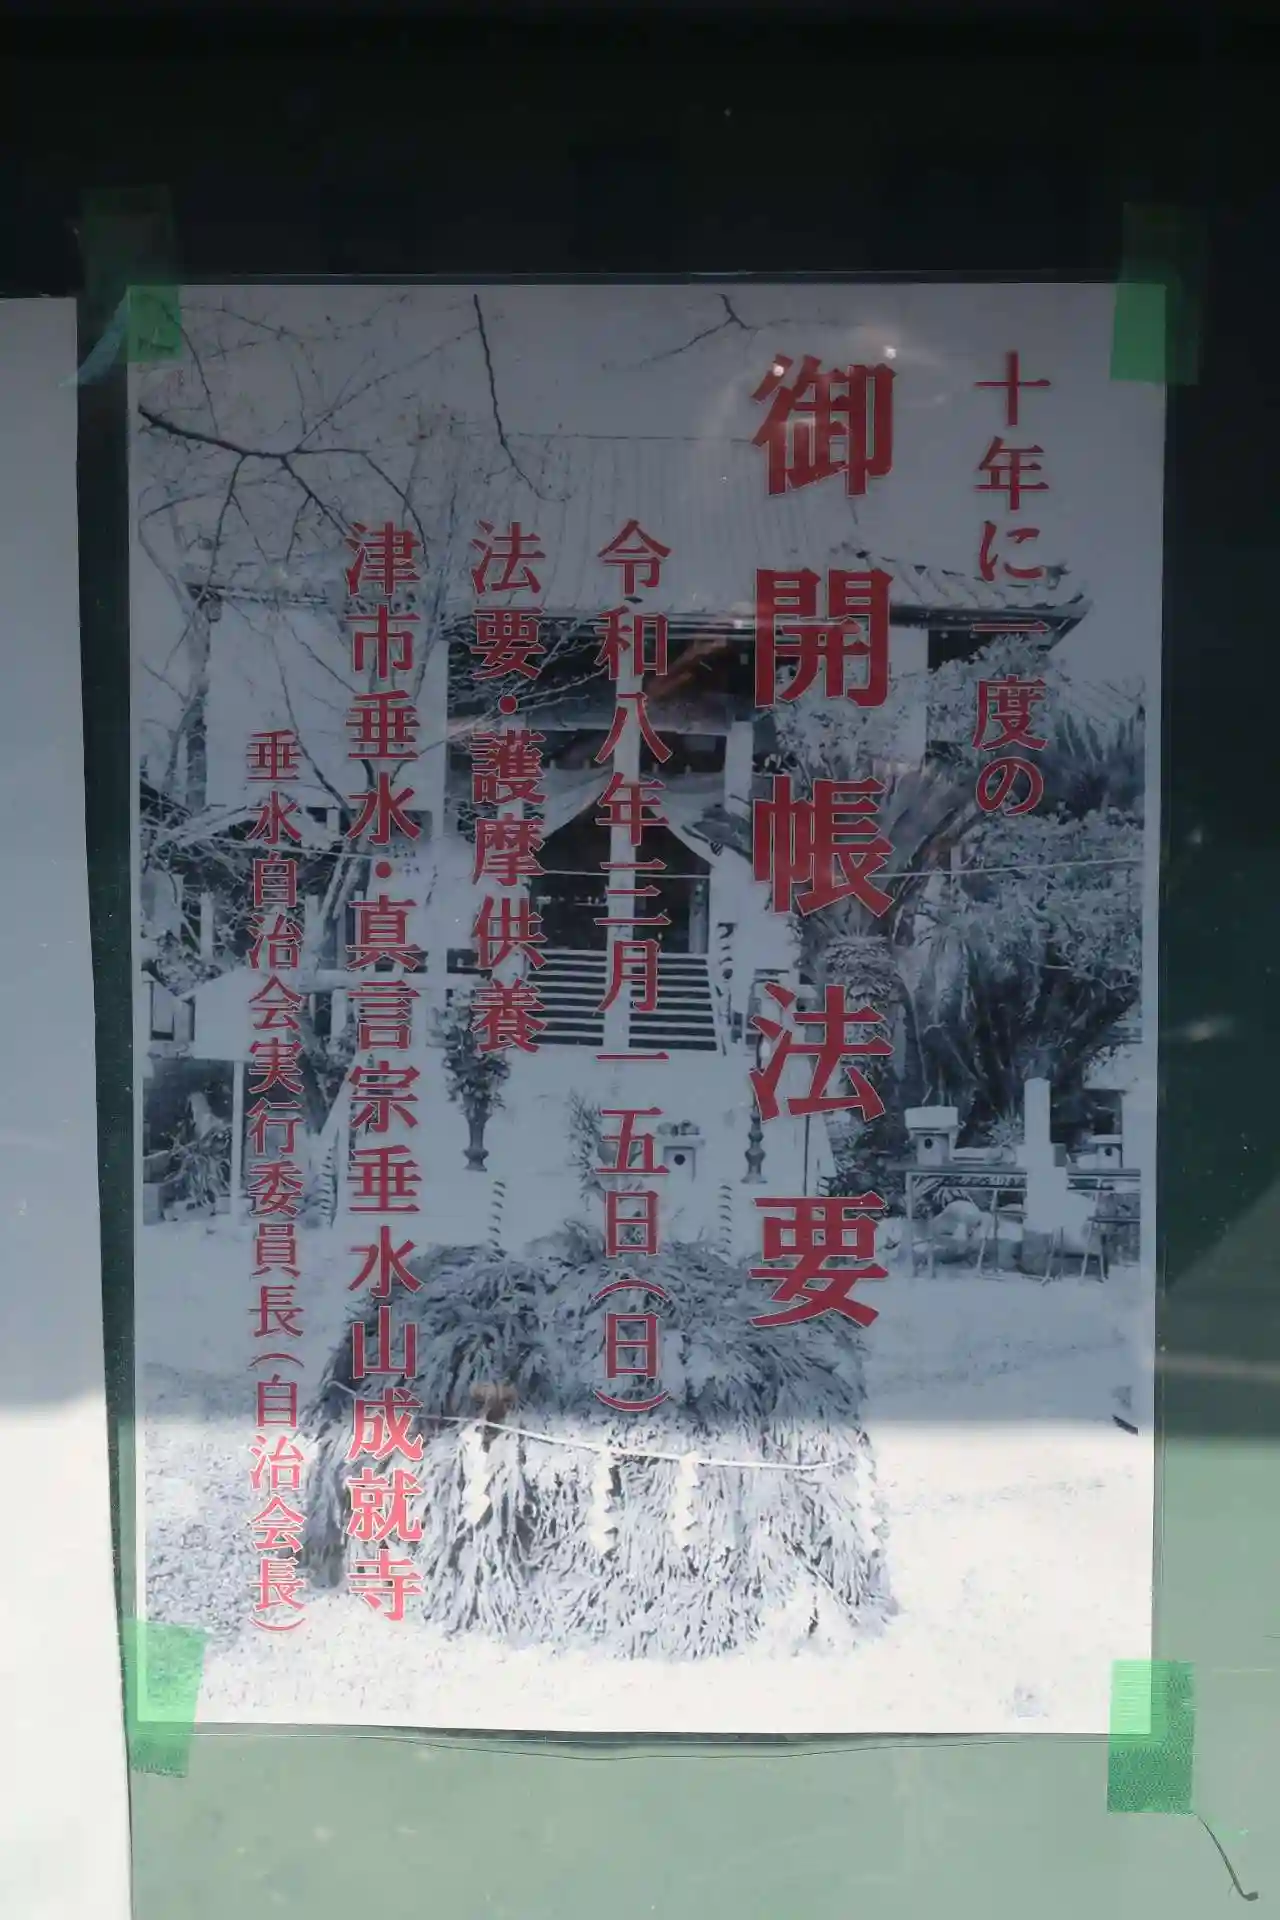 十年に一度の
御開帳法要
令和八年三月一五日(日)
法要・護摩供養
津市垂水・真言宗垂水山成就寺
垂水自治会実行委員長(自治会長)